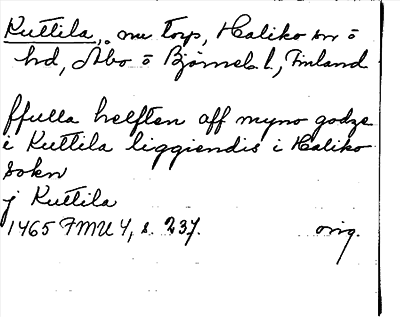 Kuttila, nu torp, Haliko sn o
hd, Åbo o Björneb. l., Finland
ffulla helften aff myno godze
i Kuttila liggiendis i Haliko
sokn
j Kuttila
1465 FMU 4, s. 237. orig.